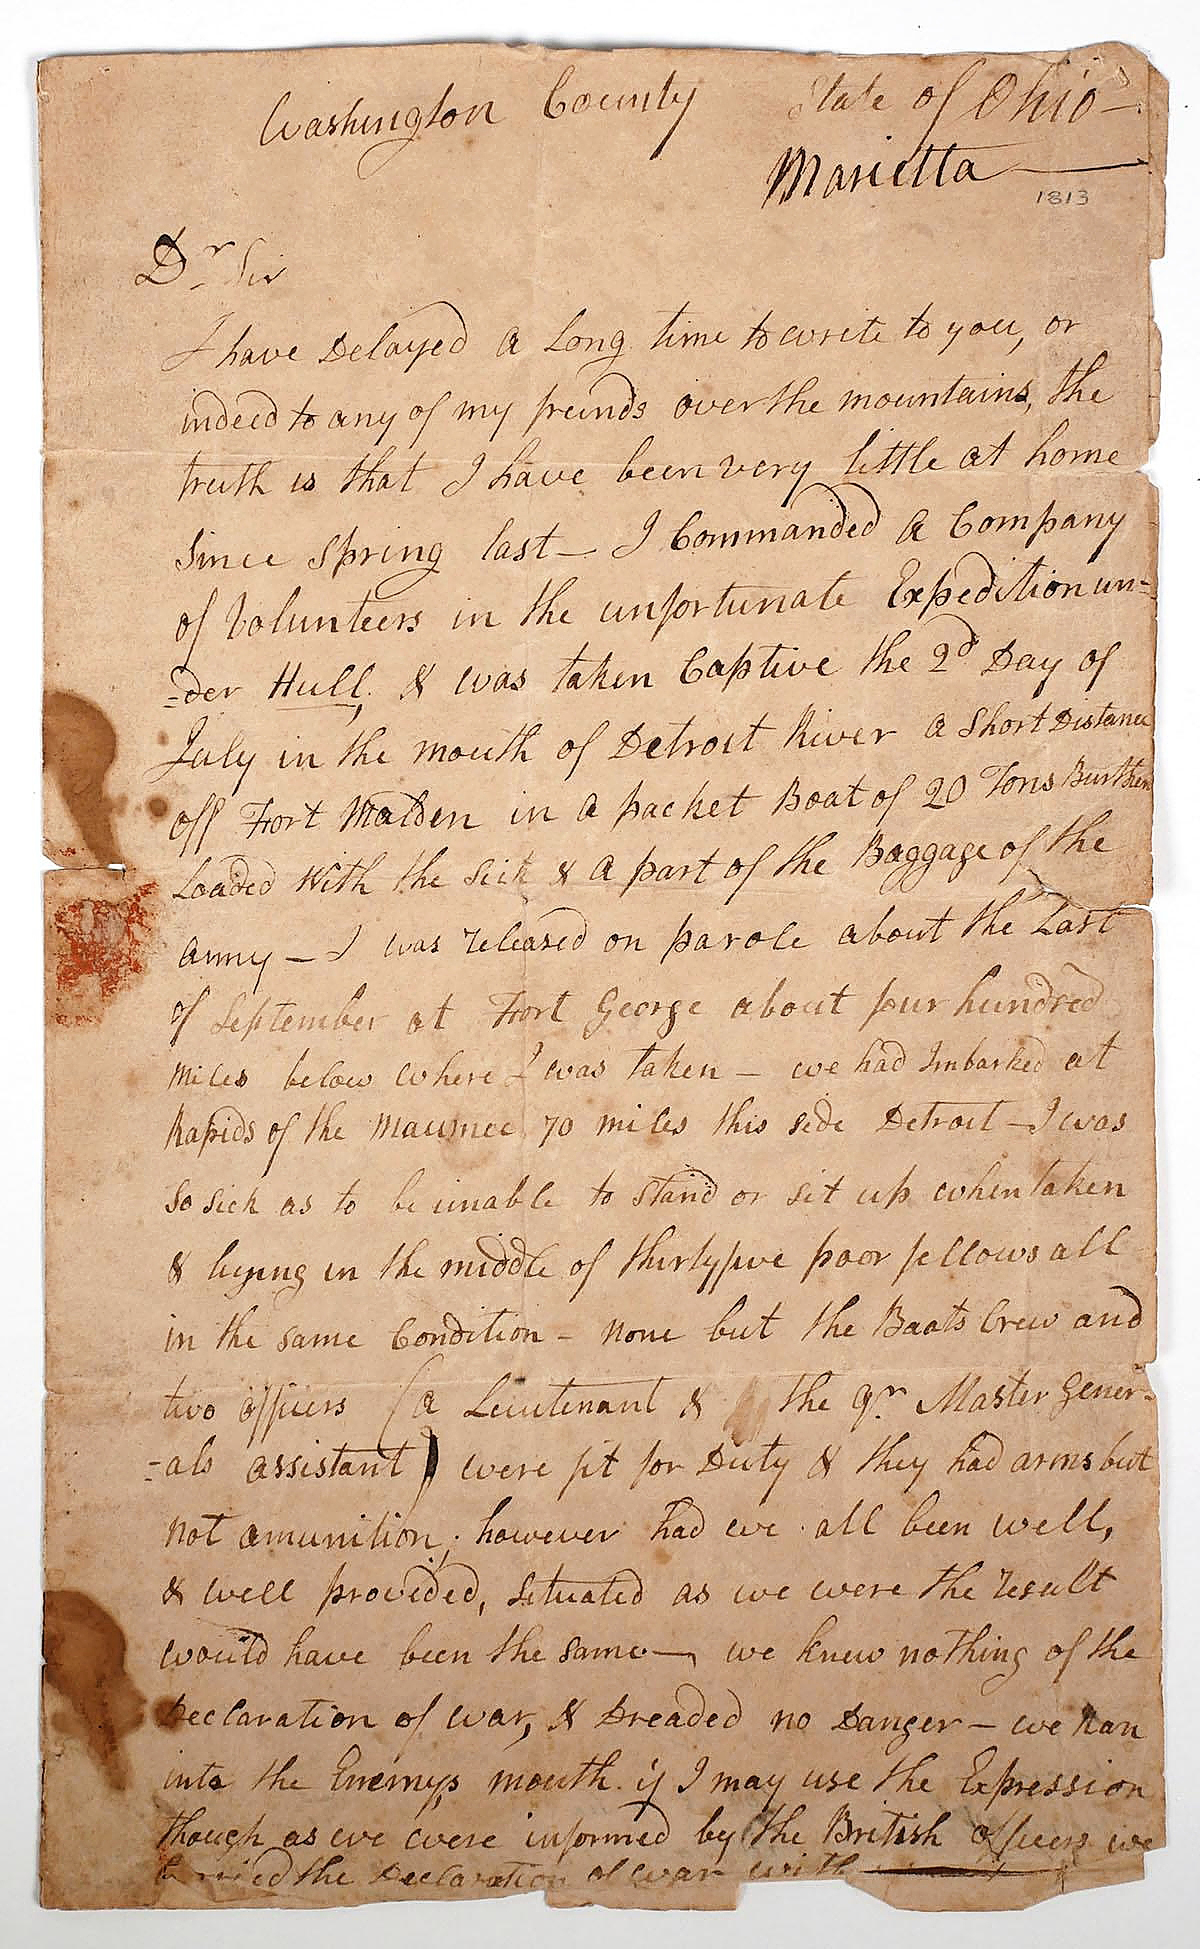 Washington County State of Ohio —
Marietta —
1813
Dr. Sir
I have Delayed a long time to write to you, or
indeed to any of my friends over the mountains, the
truth is that I have been very little at home
Since Spring last — I Commanded a Company
of Volunteers in the unfortunate Expedition un=
=der Hull, & was taken Captive the 2d Day of
July in the mouth of Detroit River a Short Distance
off Fort Malden in a packet Boat of 20 Tons Burthen
Loaded With the Sick & a part of the Baggage of the
army — I was released on parole about the Last
of September at Fort George about four hundred
miles below where I was taken — we had Imbarked at
Rapids of the Maumee 70 miles this side Detroit — I was
So sick as to be unable to stand or sit up when taken
& lying in the middle of thirtyfive poor fellows all
in the same Condition — none but the Boats Crew and
two officers (a Lieutenant & the Qr. Master Gener=
=als assistant) were fit for Duty & they had arms but
not amunition; however had we all been well,
& well provided, Situated as we were the result
would have been the same — we knew nothing of the
Declaration of war, & Dreaded no Danger — we Ran
into the Enemys mouth if I may use the Expression
though as we were informed by the British officers we
the Declaration of war with